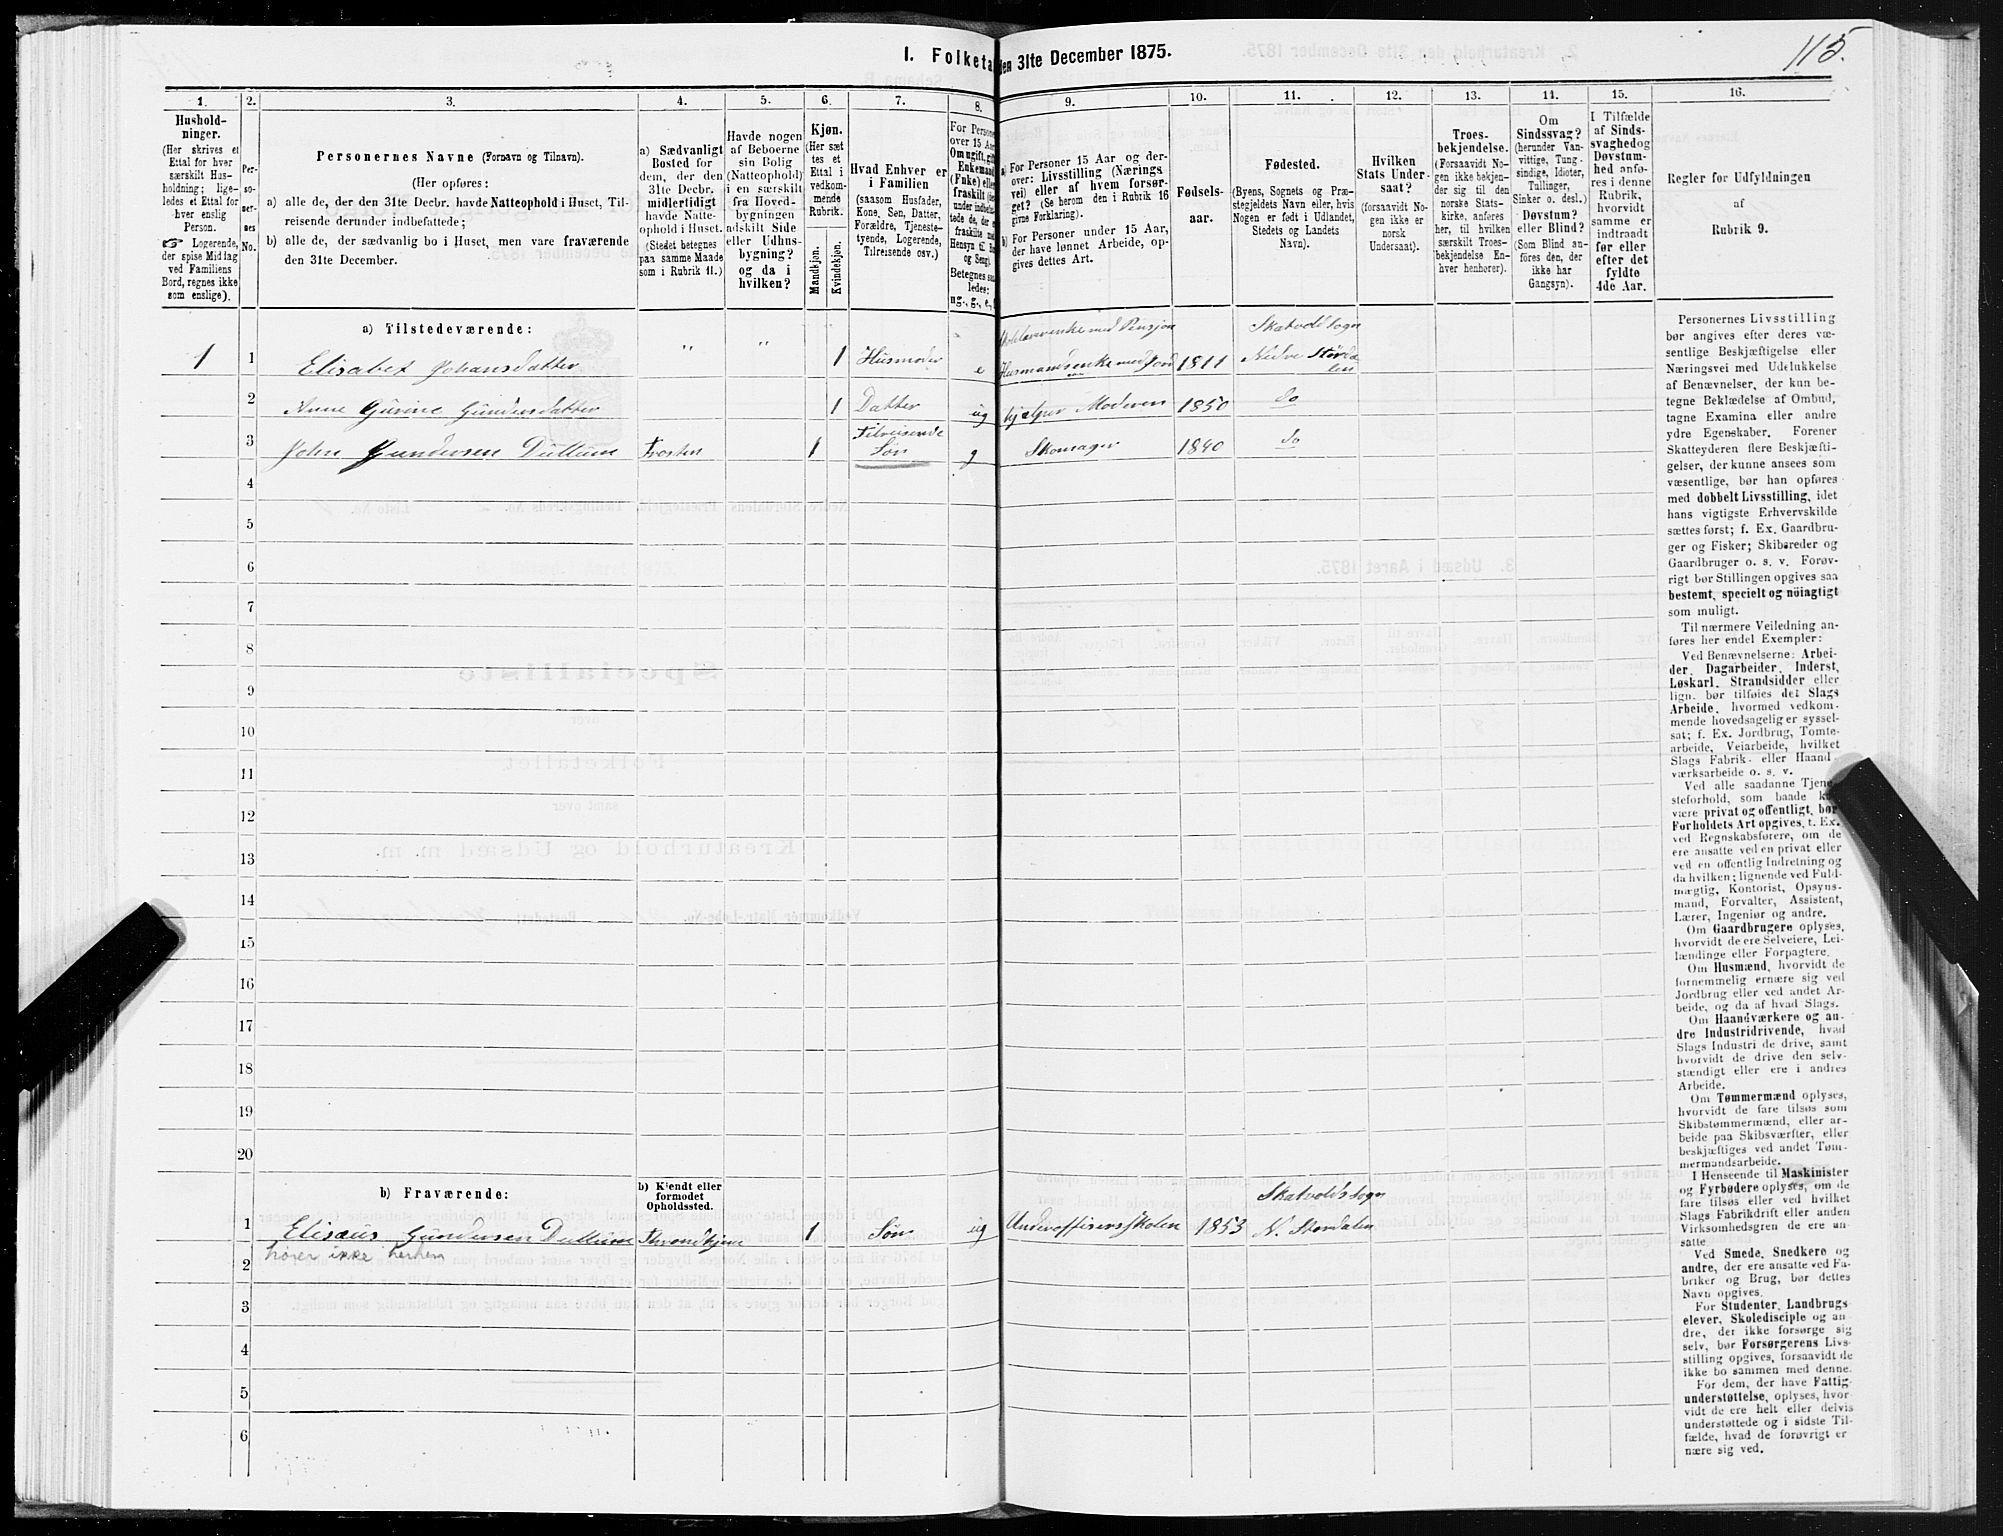 115.
I. Folketa
den 31te December 1875.
1.
2.
3.
4.
5.
6.
7.
8.
9.
10.
11.
12.
13.
14.
15.
16.
Hushold-
ninger.
(Her skrives et
Ettal for hver
særskilt Hus-
holdning; lige-
ledes et Ettal for
hver enslig
Person.
☞ Logerende,
der spise Middag
ved Familiens
Bord, regnes ikke
som enslige).
Per-
so-
ner-
nes
No.
Personernes Navne (Fornavn og Tilnavn).
(Her opføres:
a) alle de, der den 31te Decbr. havde Natteophold i Huset, Til-
reisende derunder indbefattede;
b) alle de, der sædvanlig bo i Huset, men vare fraværende
den 31te December.
a) Sædvanligt
Bosted for
dem, der den
31te Decbr.
midlertidigt
havde Natte-
ophold i Huset.
(Stedet betegnes
paa samme Maade
som i Rubrik 11.)
Havde nogen
af Beboerne
sin Bolig
(Natteophold)
i en særskilt
fra Hoved-
bygningen
adskilt Side
eller Udhus-
bygning?
og da i
hvilken?
Kjøn.
(Her sæt
tes et
Ettal i
vedkom-
mende
Rubrik.
Mandkjøn.
Kvindekjøn.
Hvad Enhver er
i Familien
(saasom Husfader,
Kone, Søn, Datter,
Forældre, Tjeneste-
tyende, Logerende,
Tilreisende osv.)
For Persone
over 15 Aar
Om ugift, gif
Enkemand
(Enke) elle
fraskilt (de
under indbe
tede de, der
fraskilte me
Hensyn til B
og Seng).
Betegnes sa
ledes:
ug., g., e.,
a) For Personer 15 Aar og der-
over: Livsstilling (Nærings
vei) eller af hvem forsør-
get? (Se herom den i Rubrik 16
givne Forklaring).
b) For Personer under 15 Aar,
der have lønnet Arbeide, op-
gives dettes Art.
Fødsels-
aar.
Fødested.
(Byens, Sognets og Præ-
stegjeldets Navn eller, hvis
Nogen er født i Udlandet,
Stedets og Landets
Navn).
Hvilken
Stats Under-
saat?
(forsaavidt No-
gen ikke er
norsk
Undersaat).
Troes-
bekjendelse.
(Forsaavidt No-
gen ikke bekjen-
der sig til den
norske Stats-
kirke, anføres
her, til hvilken
særskilt Troes-
bekjendelse En-
hver henhører).
Om
Sindssvag?
(herunder Van-
vittige, Tung-
sindige, Idioter,
Tullinger,
Sinker o. desl.)
Døvstum?
eller Blind?
(Som Blind an-
føres den, der
ikke har
Gangsyn).
I Tilfælde
af Sinds-
svaghed og
Døvstum-
hed anfø-
res i denne
Rubrik,
hvorvidt
samme er
indtraadt
før eller
efter det
fyldte
4de Aar.
Regler for Udfyldningen
af
Rubrik 9.
a) Tilstedeværende:
1 1 Elisabet Johansdatter " " 1 Husmoder e
med Pensjon
Husmandsenke med Jord 1811
Skatvold Sogn
Nedre Størda
len
2 Anne Gurine Gundersdatter 1 Datter ug hjælper Moderen 1850 do
3 John Gundersen Dullum Frosten 1 Tilreisende
Søn g Skomager 1840 do
4
5
6
7
8
9
10
11
12
13
14
15
16
17
18
19
20
b) Fraværende:
b) Kjendt eller
formodet
Opholdssted.
Skatvolds Sogn
1 Elisæus Gundersen Dullum Throndhjem 1 Søn ug Underoffisersskolen 1853 N. Stordalen
hører ikke herhen
2
3
4
5
6
Personernes Livsstilling
bør angives efter deres væ-
sentlige Beskjæftigelse eller
Næringsvei med Udelukkelse
af Benævnelser, der kun be-
tegne Beklædelse af Ombud,
tagne Examina eller andre
ydre Egenskaber. Forener
Skatteyderen flere Beskjæfti-
gelser, der kunne ansees som
væsentlige, bør han opføres
med dobbelt Livsstilling, idet
hans vigtigste Erhvervskilde
sættes først; f. Ex. Gaardbru-
ger og Fisker; Skibsreder og
Gaardbruger o. s. v. Forøv-
rigt bør Stillingen opgives saa
bestemt, specielt og nöiagtigt
som muligt.
Til nærmere Veiledning an-
føres her endel Exempler:
Ved Benævnelserne: Arbei-
der, Dagarbeider, Inderst,
Løskarl, Strandsidder eller
lign. bør tilføies det Slags
Arbeide, hvormed vedkom-
mende hovedsagelig er syssel-
sat; f. Ex. Jordbrug, Tomte-
arbeide, Veiarbeide, hvilket
Slags Fabrik- eller Haand
værksarbeide o. s. v.
Ved alle saadanne Tjene-
steforhold, som baade k
være privat og offentligt, bør
Forholdets Art opgives, t. Ex.
ved Regnskabsførere, om de
ere ansatte ved en privat eller
ved en offentlig Indretning og
da hvilken; lignende ved Fuld-
mægtig, Kontorist, Opsyns-
mand, Forvalter, Assistent,
Lærer, Ingeniør og andre.
Om Gaardbrugere oplyses,
hvorvidt de ere Selveiere, Lei-
lændinge eller Forpagtere.
Om Husmænd, hvorvidt de
fornemmelig ernære sig ved
Jordbrug eller ved andet Ar-
beide, og da af hvad Slags.
Om Haandværkere og an-
dre Industridrivende, hvad
Slags Industri de drive, samt
hvorvidt de drive den selv-
stændigt eller ere i andres
Arbeide.
Om Tømmermænd oplyses,
hvorvidt de fare tilsøs som
Skibstømmermænd, eller ar-
beide paa Skibsværfter, eller
beskjæftiges ved andet Tøm-
mermandsarbeide.
I Henseende til Maskinister
og Fyrbødere oplyses, om de
fare tilsøs eller ved hvilket
Slags Fabrikdrift eller anden
Virksomhedsgren de ere an-
satte
Ved Smede, Snedkere og
andre, der ere ansatte ved Fa-
briker og Brug, bør dettes
Navn opgives.
For Studenter, Landbrugs-
elever, Skoledisciple og an-
dre, der ikke forsørge sig
selv, bør Forsørgerens Livs-
stilling opgives, forsaavidt de
ikke bo sammen med denne.
For dem, der have Fattig-
understøttelse, oplyses, hvor-
vidt de ere helt eller delvis
understøttede og i sidste Til-
fælde, hvad de forøvrigt er
nære sig ved.